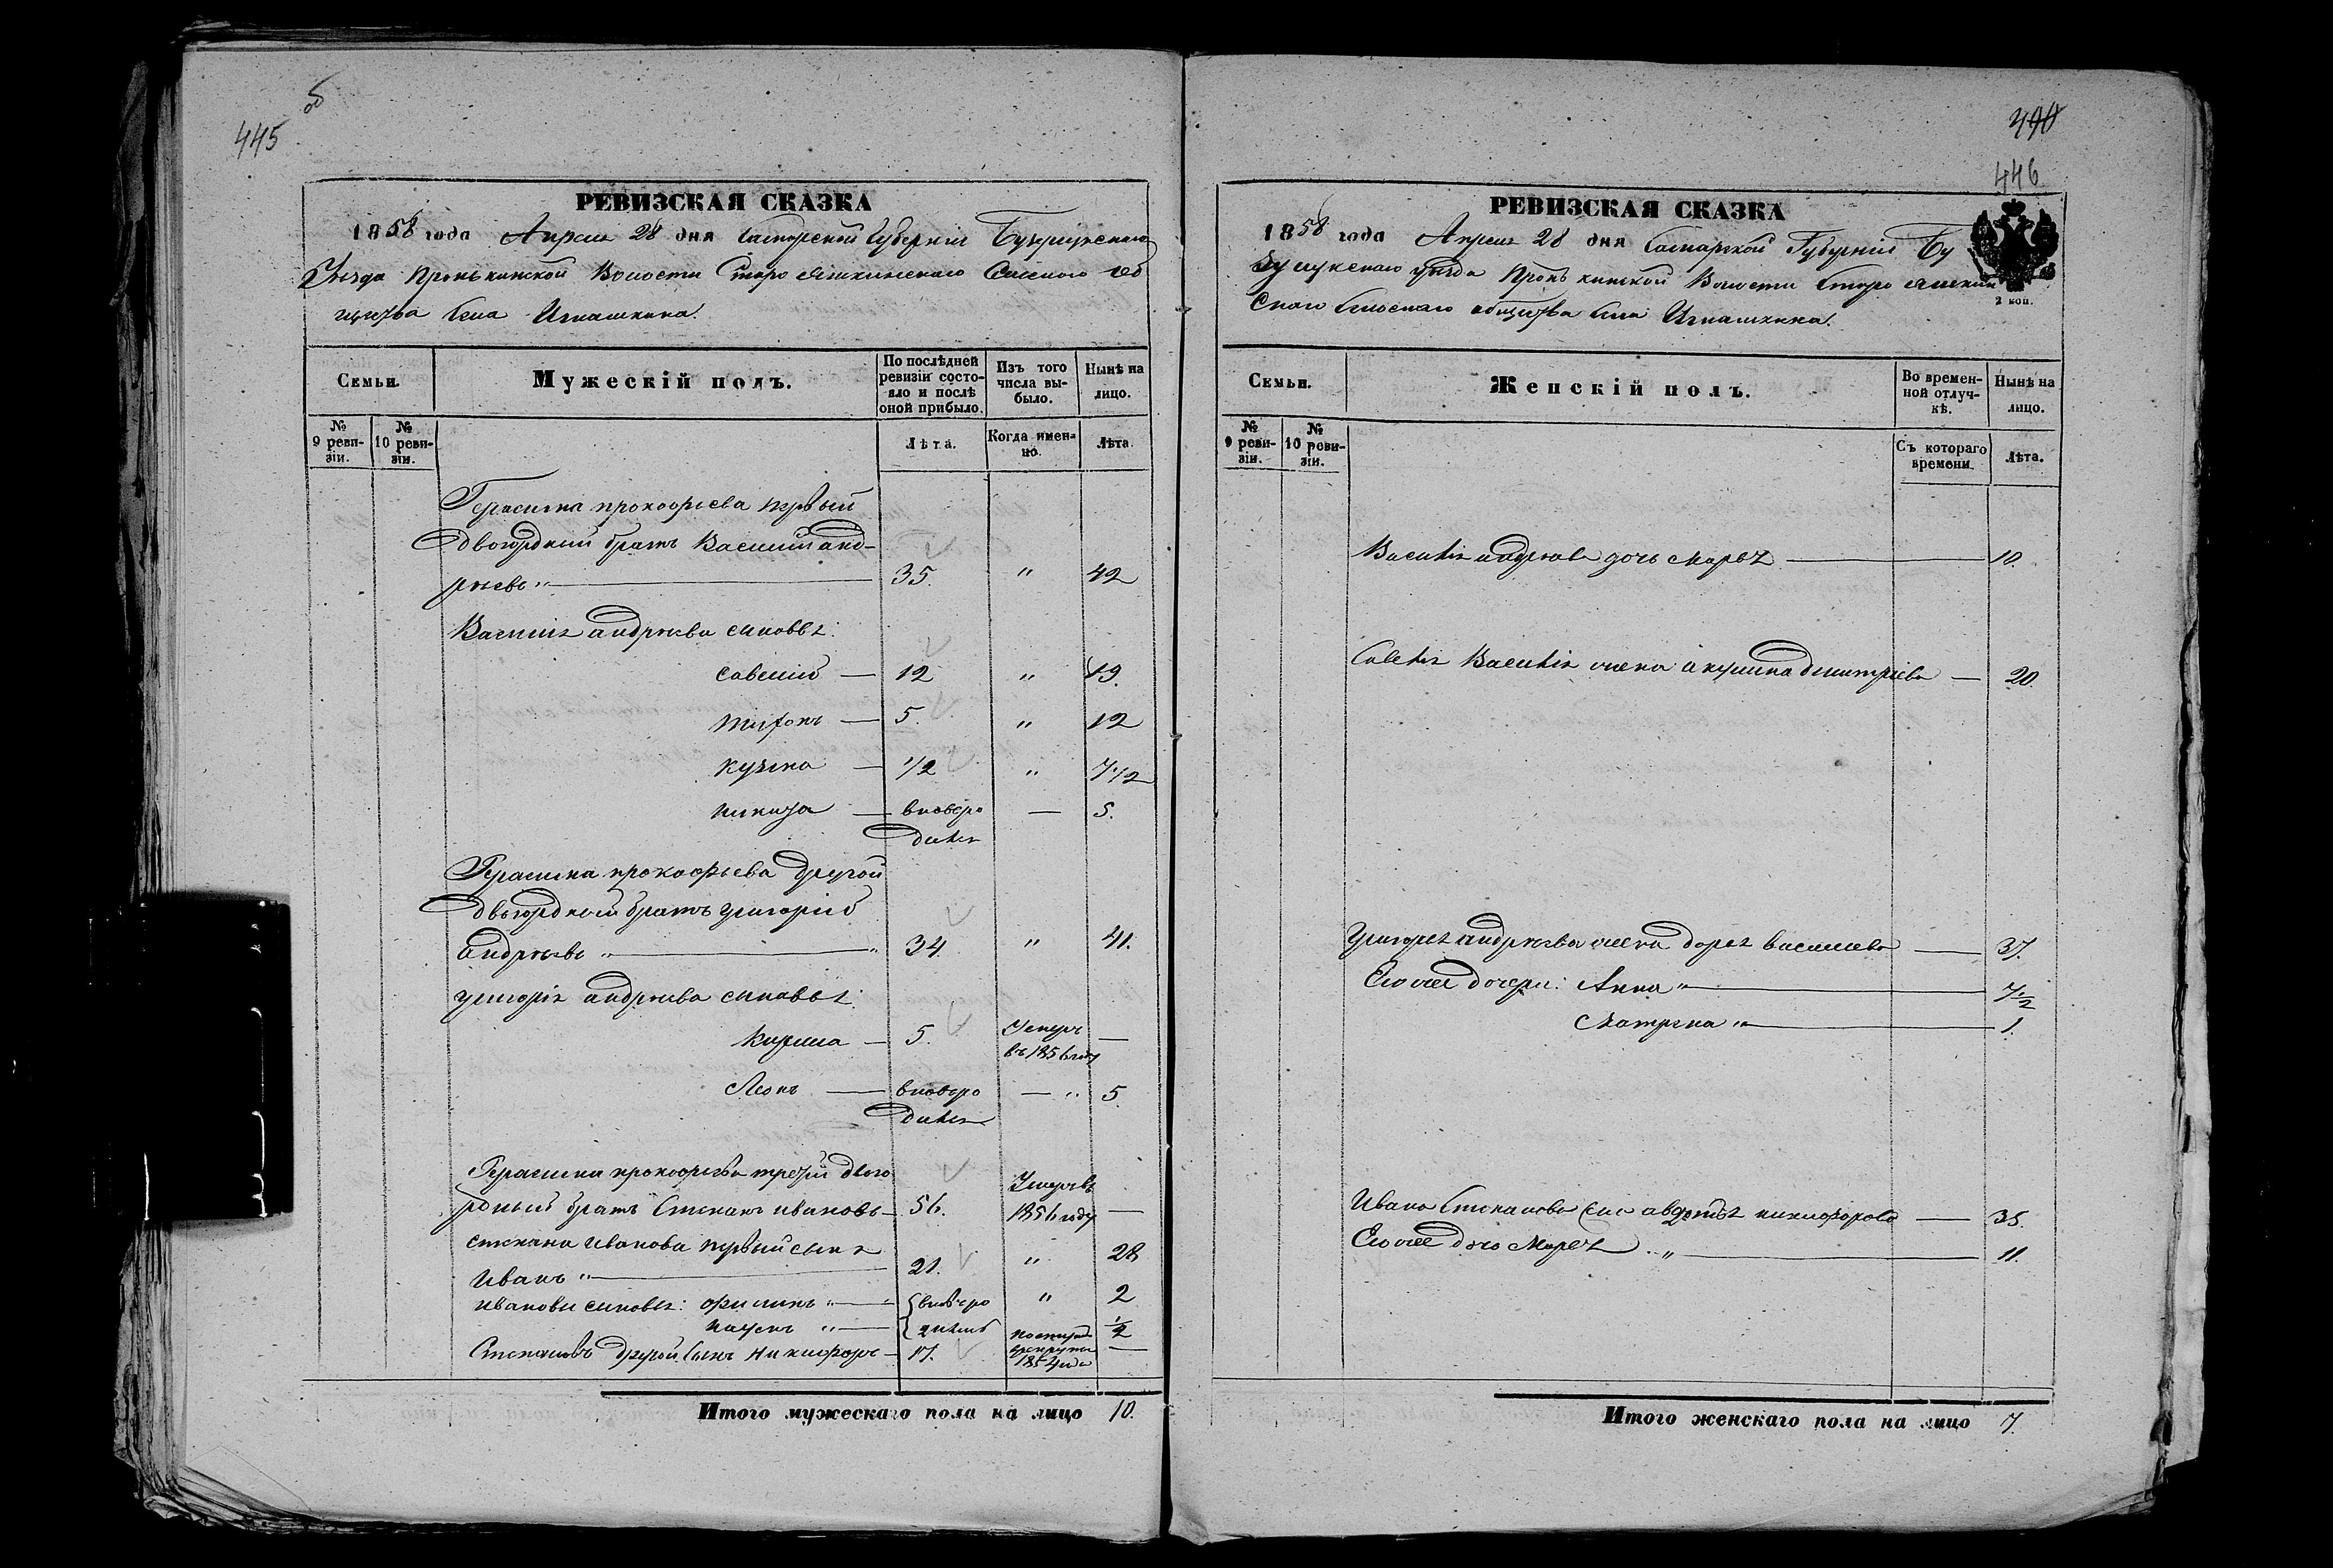 445
об
РЕВИЗСКАЯ СКАЗКА
1858 года Апреля 28 дня Самарской Губерніи Бузулукскаго
Уезда Пронькинской Волости Старо Сельскаго об
щества Села Игнашкина.
Семьи.
Мужескій полъ.
По послѣдней ревизіи состо-яло и послѣ оной прибыло.
Изъ того числа вы-было.
Нынѣ на лицо.
№ 9 реви-зіи.
№ 10 реви-зіи.
Лѣта.
Когда имен-но.
Лѣта.
Герасима прокофьева первый
двоюродный братъ Василий анд-
реевъ „ 35. „ 42
Василия андреева сыновья:
савелий — 12 „ 19.
тифонъ — 5. „ 12
кузма — 1/2 „ 7 1/2
никита — вновьро — 5.
дился
Герасима прокофьева другой
двоюродный братъ григорий
андреевъ „ „ 34. „ 41.
григория андреева сыновья:
Кирила — 5. Умеръ въ 1856 году —
Леонъ — вновьро — „ 5.
дился
Герасима прокофьева третий двою
родный братъ Степанъ ивановъ — 56. Умеръ въ 1856 году —
степана иванова первый сынъ
Иванъ „ 21. „ 28
ивановы сыновья: филипъ „ — {вновьро „ 2
наумъ „ — 1/2
Степановъ другой сынъ Никифоръ — 17. 1854 года —
Итого мужескаго пола на лицо 10.
490
446
РЕВИЗСКАЯ СКАЗКА
2 коп.
1858 года Апреля 28 дня Самарской Губерніи Бу
зулукскаго уезда Пронькинской Волости Старо
скаго Сельскаго общества Села Игнашкина.
Семьи.
Женскій полъ.
Во времен-ной отлуч-кѣ.
Нынѣ на лицо.
№ 9 реви-зіи.
№ 10 реви-зіи.
Съ котораго времени.
Лѣта.
Василия андреева дочь Марья — 10.
Савелия Василия жена акулина дмитриева — 20.
григория андреева жена дарья василиева — 37.
Его же дочери: Анна „ 7 1/2
Матрена „ 1.
Ивана Степанова авдотья никифорова — 35.
Его же дочь Марья „ 11.
Итого женскаго пола на лицо 7.